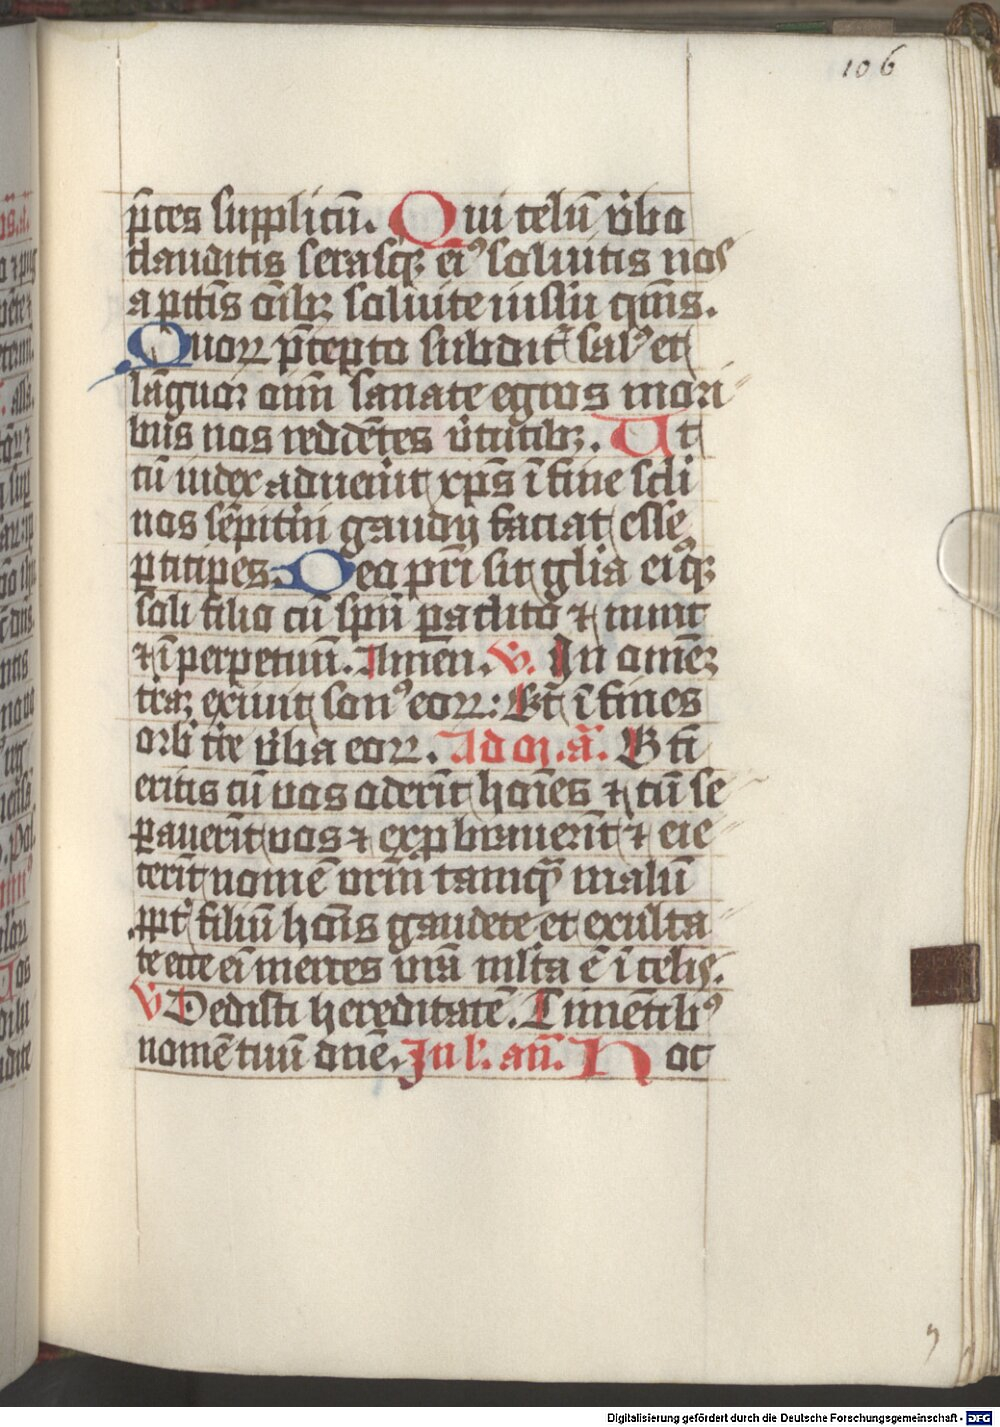 106
p̄ces supplicū. Qui celū v̾bo
clauditis serasqꝫ ei⁹ soluitis nos
a pctīs oībꝫ soluite iussu q̄ms.
Quoꝝ p̄cepto subdit᷑ sal⁹ et
lāguor oīm sanate egros mori
bus nos reddētes v̾tutibꝫ. Ut
cū iudex aduen̾it xp̄s ī fine scl̄i
nos sēpit̾ni gaudij faciat esse
ꝑticipes. Deo pr̄i sit gl̄ia ei⁹qꝫ
soli filio cū spū ꝑaclito ⁊ nunc
⁊ ī perpetuū. Amen. v. In omēꝫ
t̾raꝫ exiuit son⁹ eoꝝ: Et ī fines
orb̾ t̾re v̾ba eoꝝ. Ad ɱ. ā. Bt̄i
eritis cū vos oderīt hoīes ⁊ cū se
ꝑauerīt vos ⁊ exꝓbrauerīt ⁊ eie
cerīt nomē vr̄m tamq̄ malū
ꝓpt̾ filiū hoīs gaudete et exulta
te ecce eī merces vr̄a mlt̄a ē ī celis.
v Dedisti hereditatē. Timētib⁹
nomē tuū dn̄e. In l̾. añ. Hoc
Digitalisierung gefördert durch die Deutsche Forschungsgemeinschaft - DFG